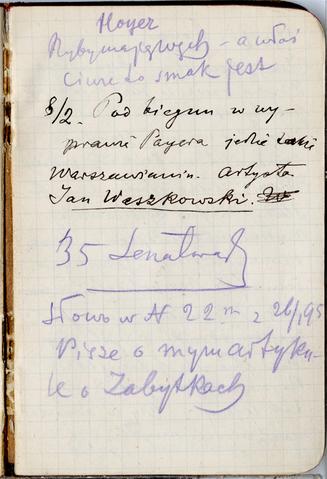 Hoyer
– a właś
ciwie to smak jest
8/2. Pod biegun w wy-
prawie Payera jedzie także
Warszawianin. Artysta
Jan Waszkowski.
35
Słowo w N 22 m z 26/I 95
Pisze o mym artyku-
le o Zabytkach